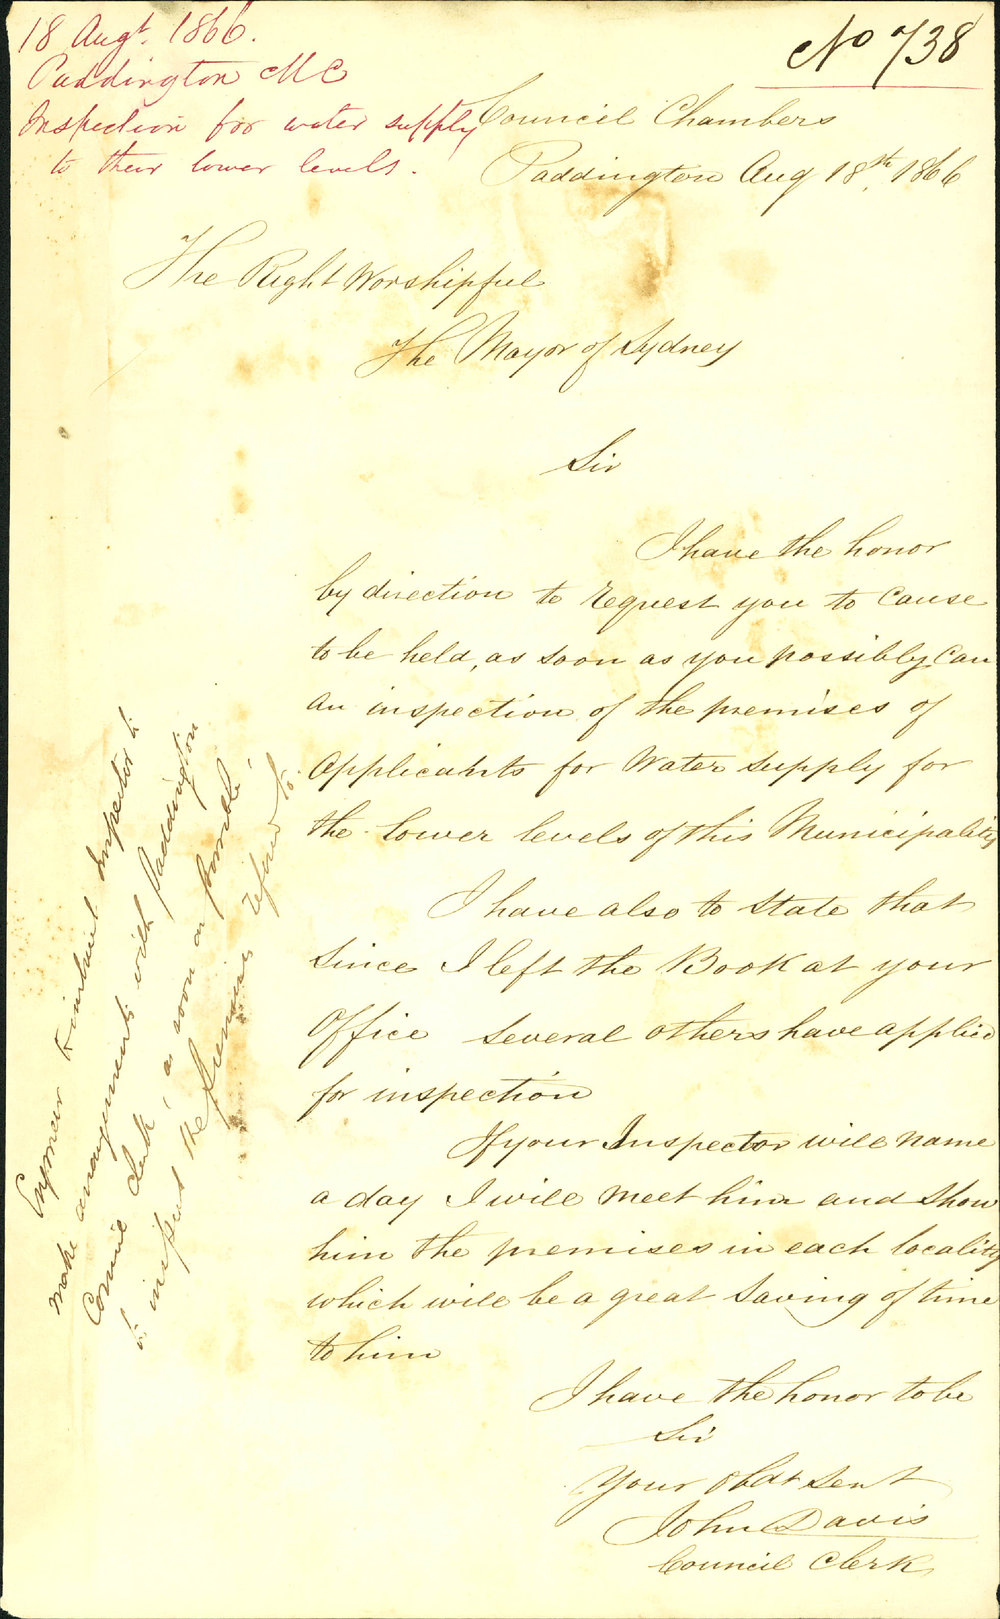 18 Augt. 1866.
Paddington M C
Inspection for water supply
to their lower levels.
No 738
Council Chambers
Paddington Aug 18th, 1866
The Right Worshipful
The Mayor of Sydney
Sir
I have the honor
by direction to request you to cause
to be held, as soon as you possibly Can
An inspection of the premises of
Applicants for Water supply for
the lower levels of this Municipality
I have also to state that
since I left the Book at your
Office several others have applied
for inspection
If your Inspector will name
a day I will meet him and show
him the premises in each locality
which will be a great saving of time
to him
I have the honor to be
Sir
Your Obdt Sevt
John Davis
Council Clerk
Engineer to instruct Inspector to
make arrangements with Paddington
Council Clerk, as soon as possible,
to inspect the premises referred to.